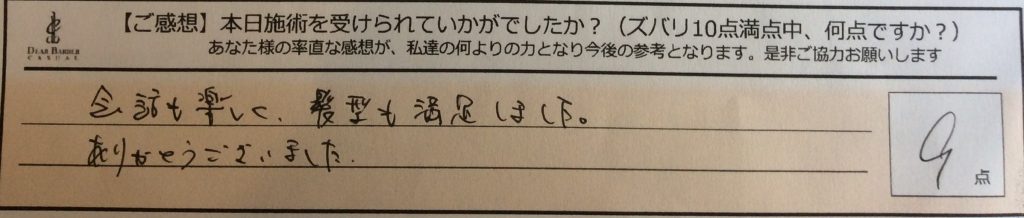 DEAR BARBER
CASUAL
【ご感想】本日施術を受けられていかがでしたか？（ズバリ10点満点中、何点ですか？）
あなた様の率直な感想が、私達の何よりの力となり今後の参考となります。是非ご協力お願いします
会話も楽しく、髪型も満足しました。
ありがとうございました.
9点